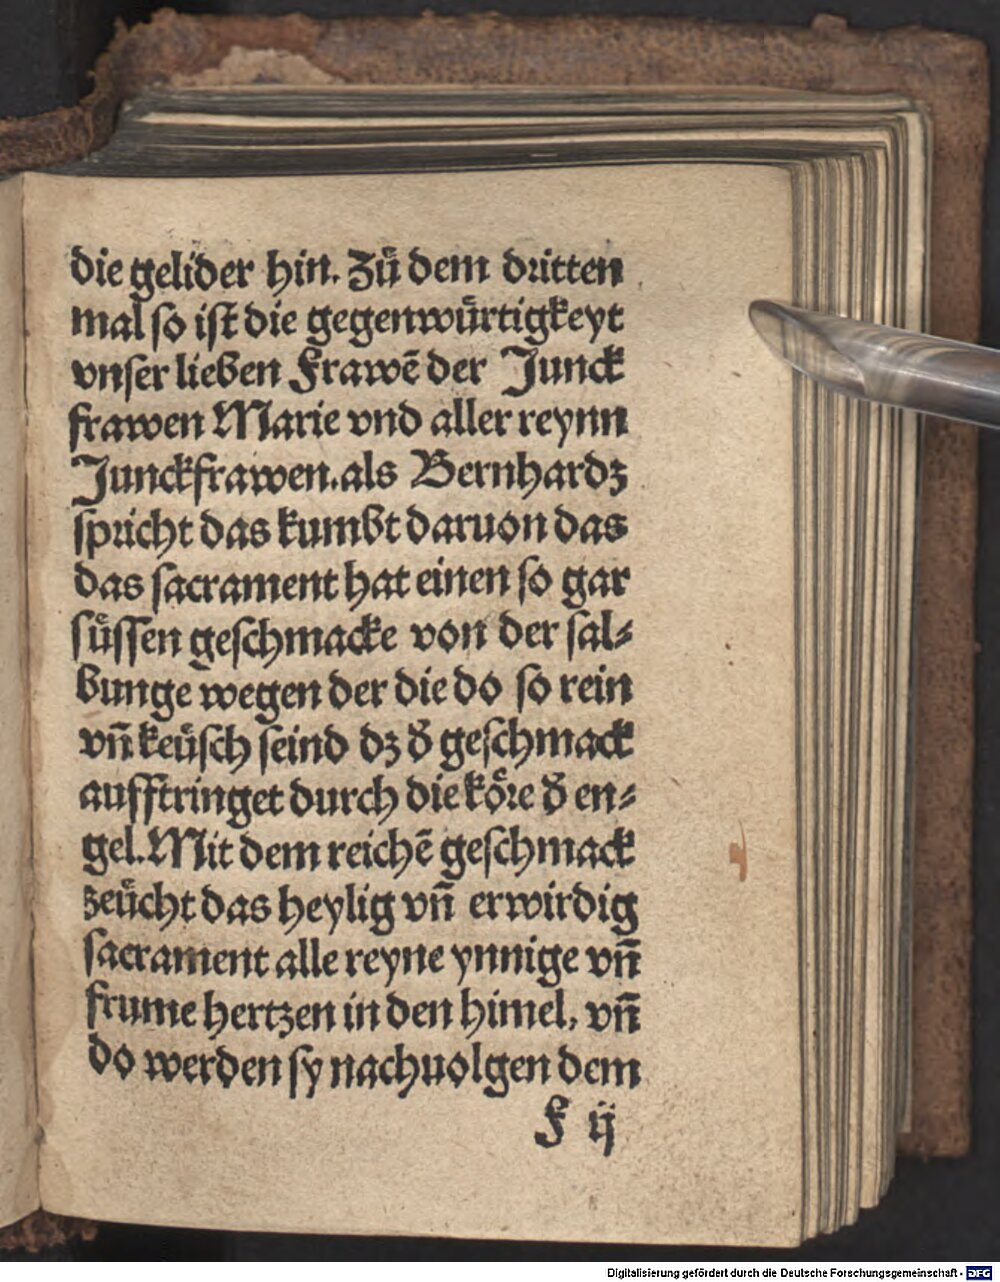 die gelider hin. Zů dem dritten
mal so ist die gegenwürtigkeyt
vnser lieben Frawē der Junck
frawen Marie vnd aller reynn
Junckfrawen. als Bernhardꝫ
spricht das kumbt daruon das
das sacrament hat einen so gar
süssen geschmacke von der sal⸗
bunge wegen der die do so rein
vn̄ keüsch seind dꝫ d̓ geschmack
aufftringet durch die köre d̓ en⸗
gel. Mit dem reichē geschmack
zeücht das heylig vn̄ erwirdig
sacrament alle reyne ynnige vn̄
frume hertzen in den himel, vn̄
do werden sy nachuolgen dem
F ij
Digitalisierung gefördert durch die Deutsche Forschungsgemeinschaft - DFG